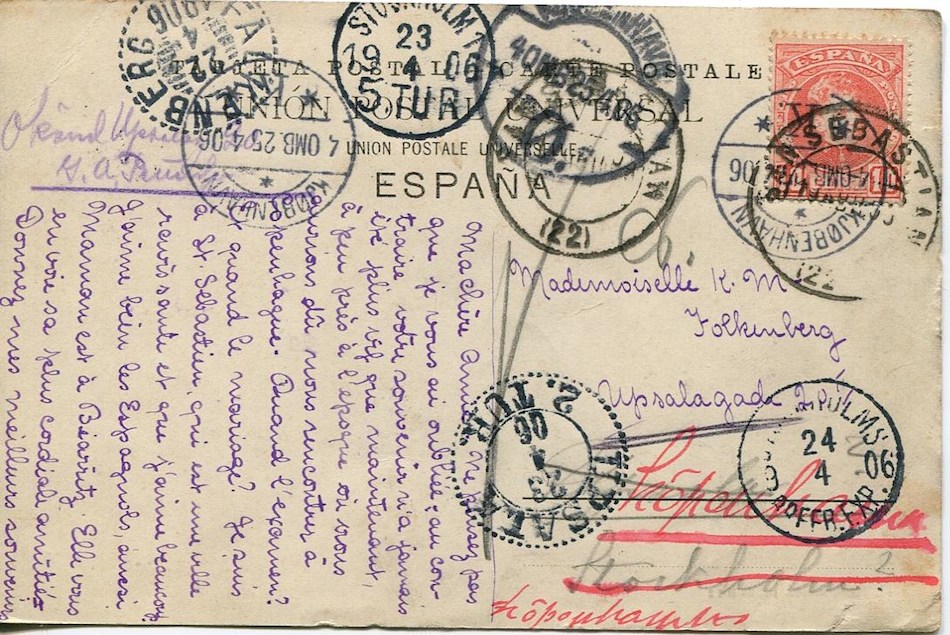 TARJETA POSTAL - CARTE POSTALE
UNIÓN POSTAL UNIVERSAL
UNION POSTALE UNIVERSELLE
ESPAÑA
ESPAÑA
STOCKHOLM 1
23
19 4 06
5. TUR
KJØBENHAVN
4 OMB 25 4 06
KJØBENHAVN
4 OMB
06
SAN SEBASTIAN
(22)
(22)
UPSALA
23
4
06
2. TUR
24
4
06
Okänd Upsala
G. A.
Mademoiselle K. M
Folkenberg
Upsalagada
Köpenhamn
Stockholm ?
Köpenhamn
Ma chère Amie Ne pensez pas
que je vous ai oubliée; au con-
traire votre souvenir n'a jamais
été plus vif que maintenant,
à peu près à l'époque où nous
aurions dû nous rencontrer à
penhague. Quand l'examen?
et quand le mariage? Je suis
à St. Sebastien, qui est une ville
ravissante et que j'aime beaucoup
J'aime bien les Espagnols, aussi
Maman est à Biarritz Elle vous
envoie sa plus cordial amitiés
Donnez mes meilleurs souvenirs